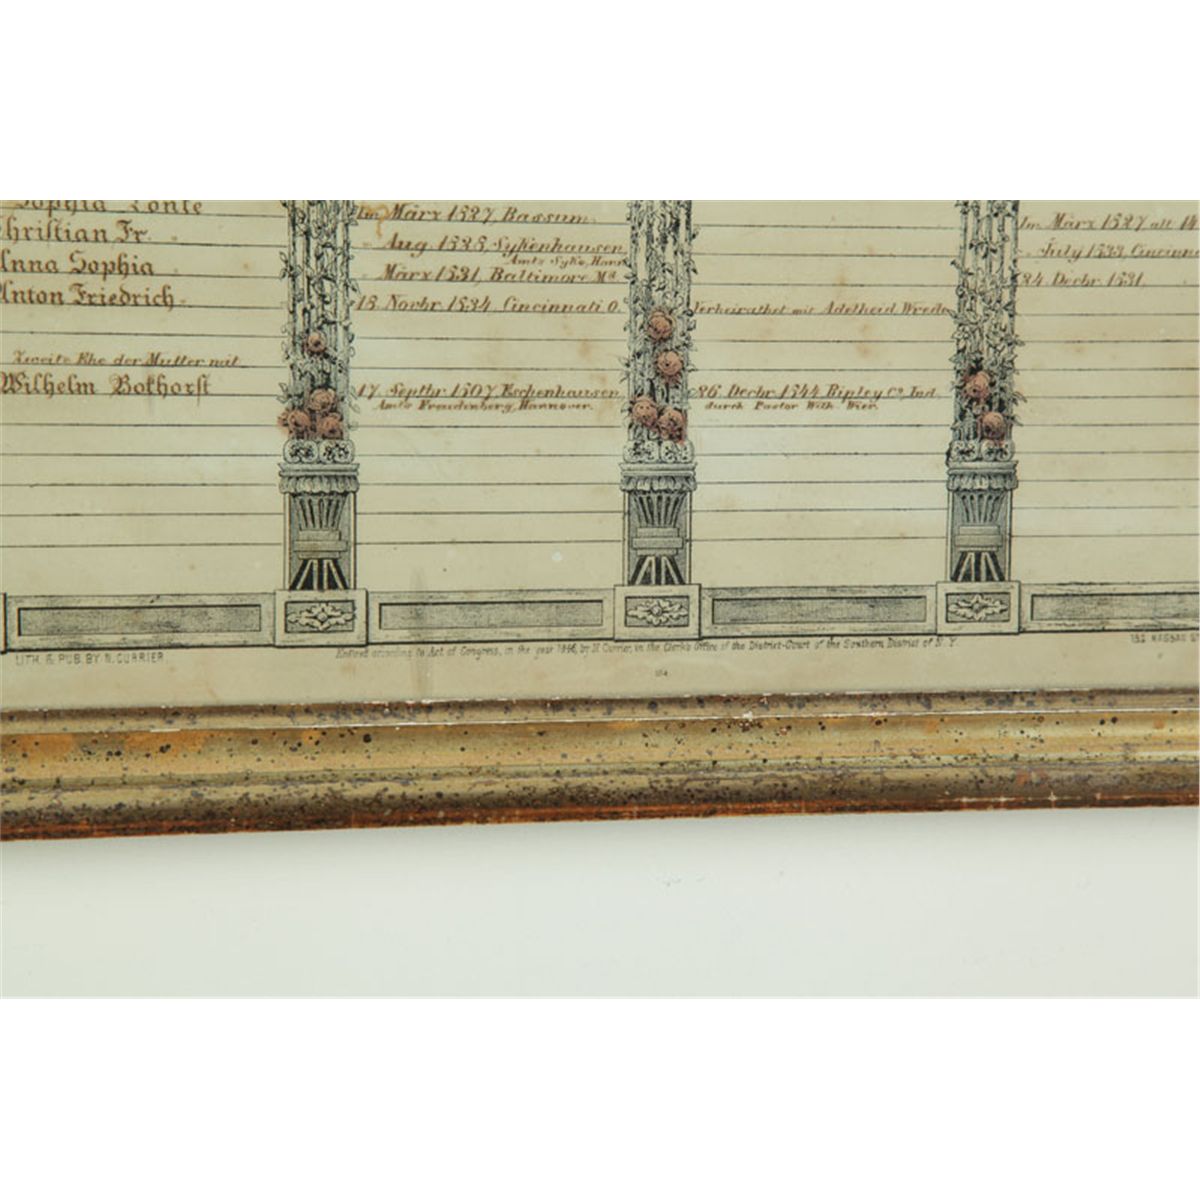 Sophia
Im März 1827, Bassum.
Im März 1827 alt
Christian Fr.
Aug 1828, Sykenhausen
Amts Syke, Hann
July 1833, Cincinna
Anna Sophia
März 1831, Baltimore Md
24 Decbr 1831.
Anton Friedrich.
18 Novbr 1834, Cincinnati O.
Verheirathet mit Adelheid Wrede
Zweite Ehe der Mutter mit
Wilhelm Bokhorst
17 Septbr 1807 Eschenhausen
Amts Freudenberg, Hannover.
26 Decbr 1844 Ripley Co. Ind.
durch Pastor Wilh. Wier.
LITH. & PUB. BY N. CURRIER
Entered according to Act of Congress, in the year 1846, by N. Currier, in the Clerk's Office of the District-Court of the Southern District of N. Y.
152 NASSAU